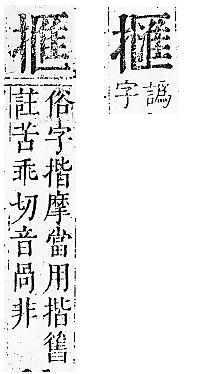 譌
字
俗字揩摩當用揩舊
註苦乖切音咼非